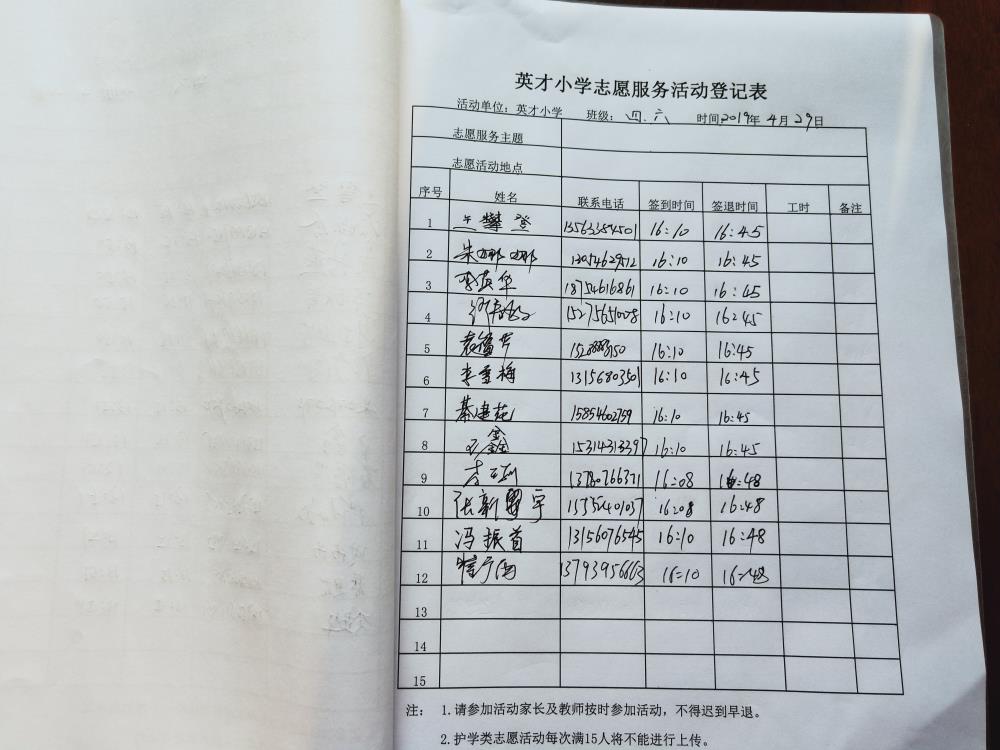 英才小学志愿服务活动登记表
活动单位：英才小学 班级：四.六 时间2019年4月29日
志愿服务主题
志愿活动地点
序号 姓名 联系电话 签到时间 签退时间 工时 备注
1 攀登 13563384501 16:10 16:45
2 朱娜娜 16:10 16:45
3 李英华 18754616861 16:10 16:45
4 16:10 16:45
5 16:10 16:45
6 李雪梅 13156803501 16:10 16:45
7 綦建苑 15854602759 16:10 16:45
8 鑫 15314313397 16:10 16:45
9 李 16:08 16:48
10 张新 宇 16:08 16:48
11 冯振首 13156076545 16:10 16:48
12 13793956663 16:10 16:48
13
14
15
注： 1.请参加活动家长及教师按时参加活动，不得迟到早退。
2.护学类志愿活动每次满15人将不能进行上传。